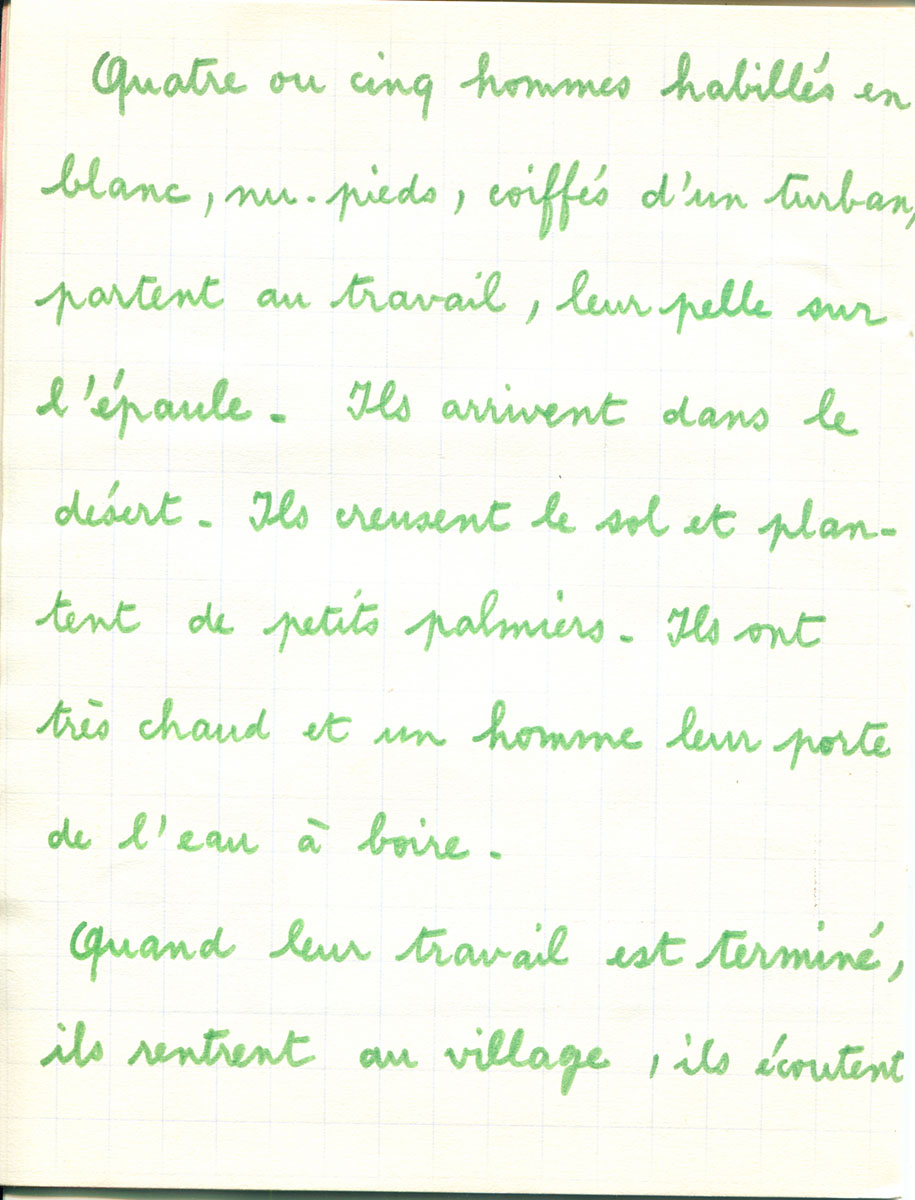 Quatre ou cinq hommes habillés en
blanc, nu-pieds, coiffés d'un turban,
partent au travail, leur pelle sur
l'épaule. Ils arrivent dans le
désert. Ils creusent le sol et plan-
tent de petits palmiers. Ils ont
très chaud et un homme leur porte
de l'eau à boire.
Quand leur travail est terminé,
ils rentrent au village, ils écoutent